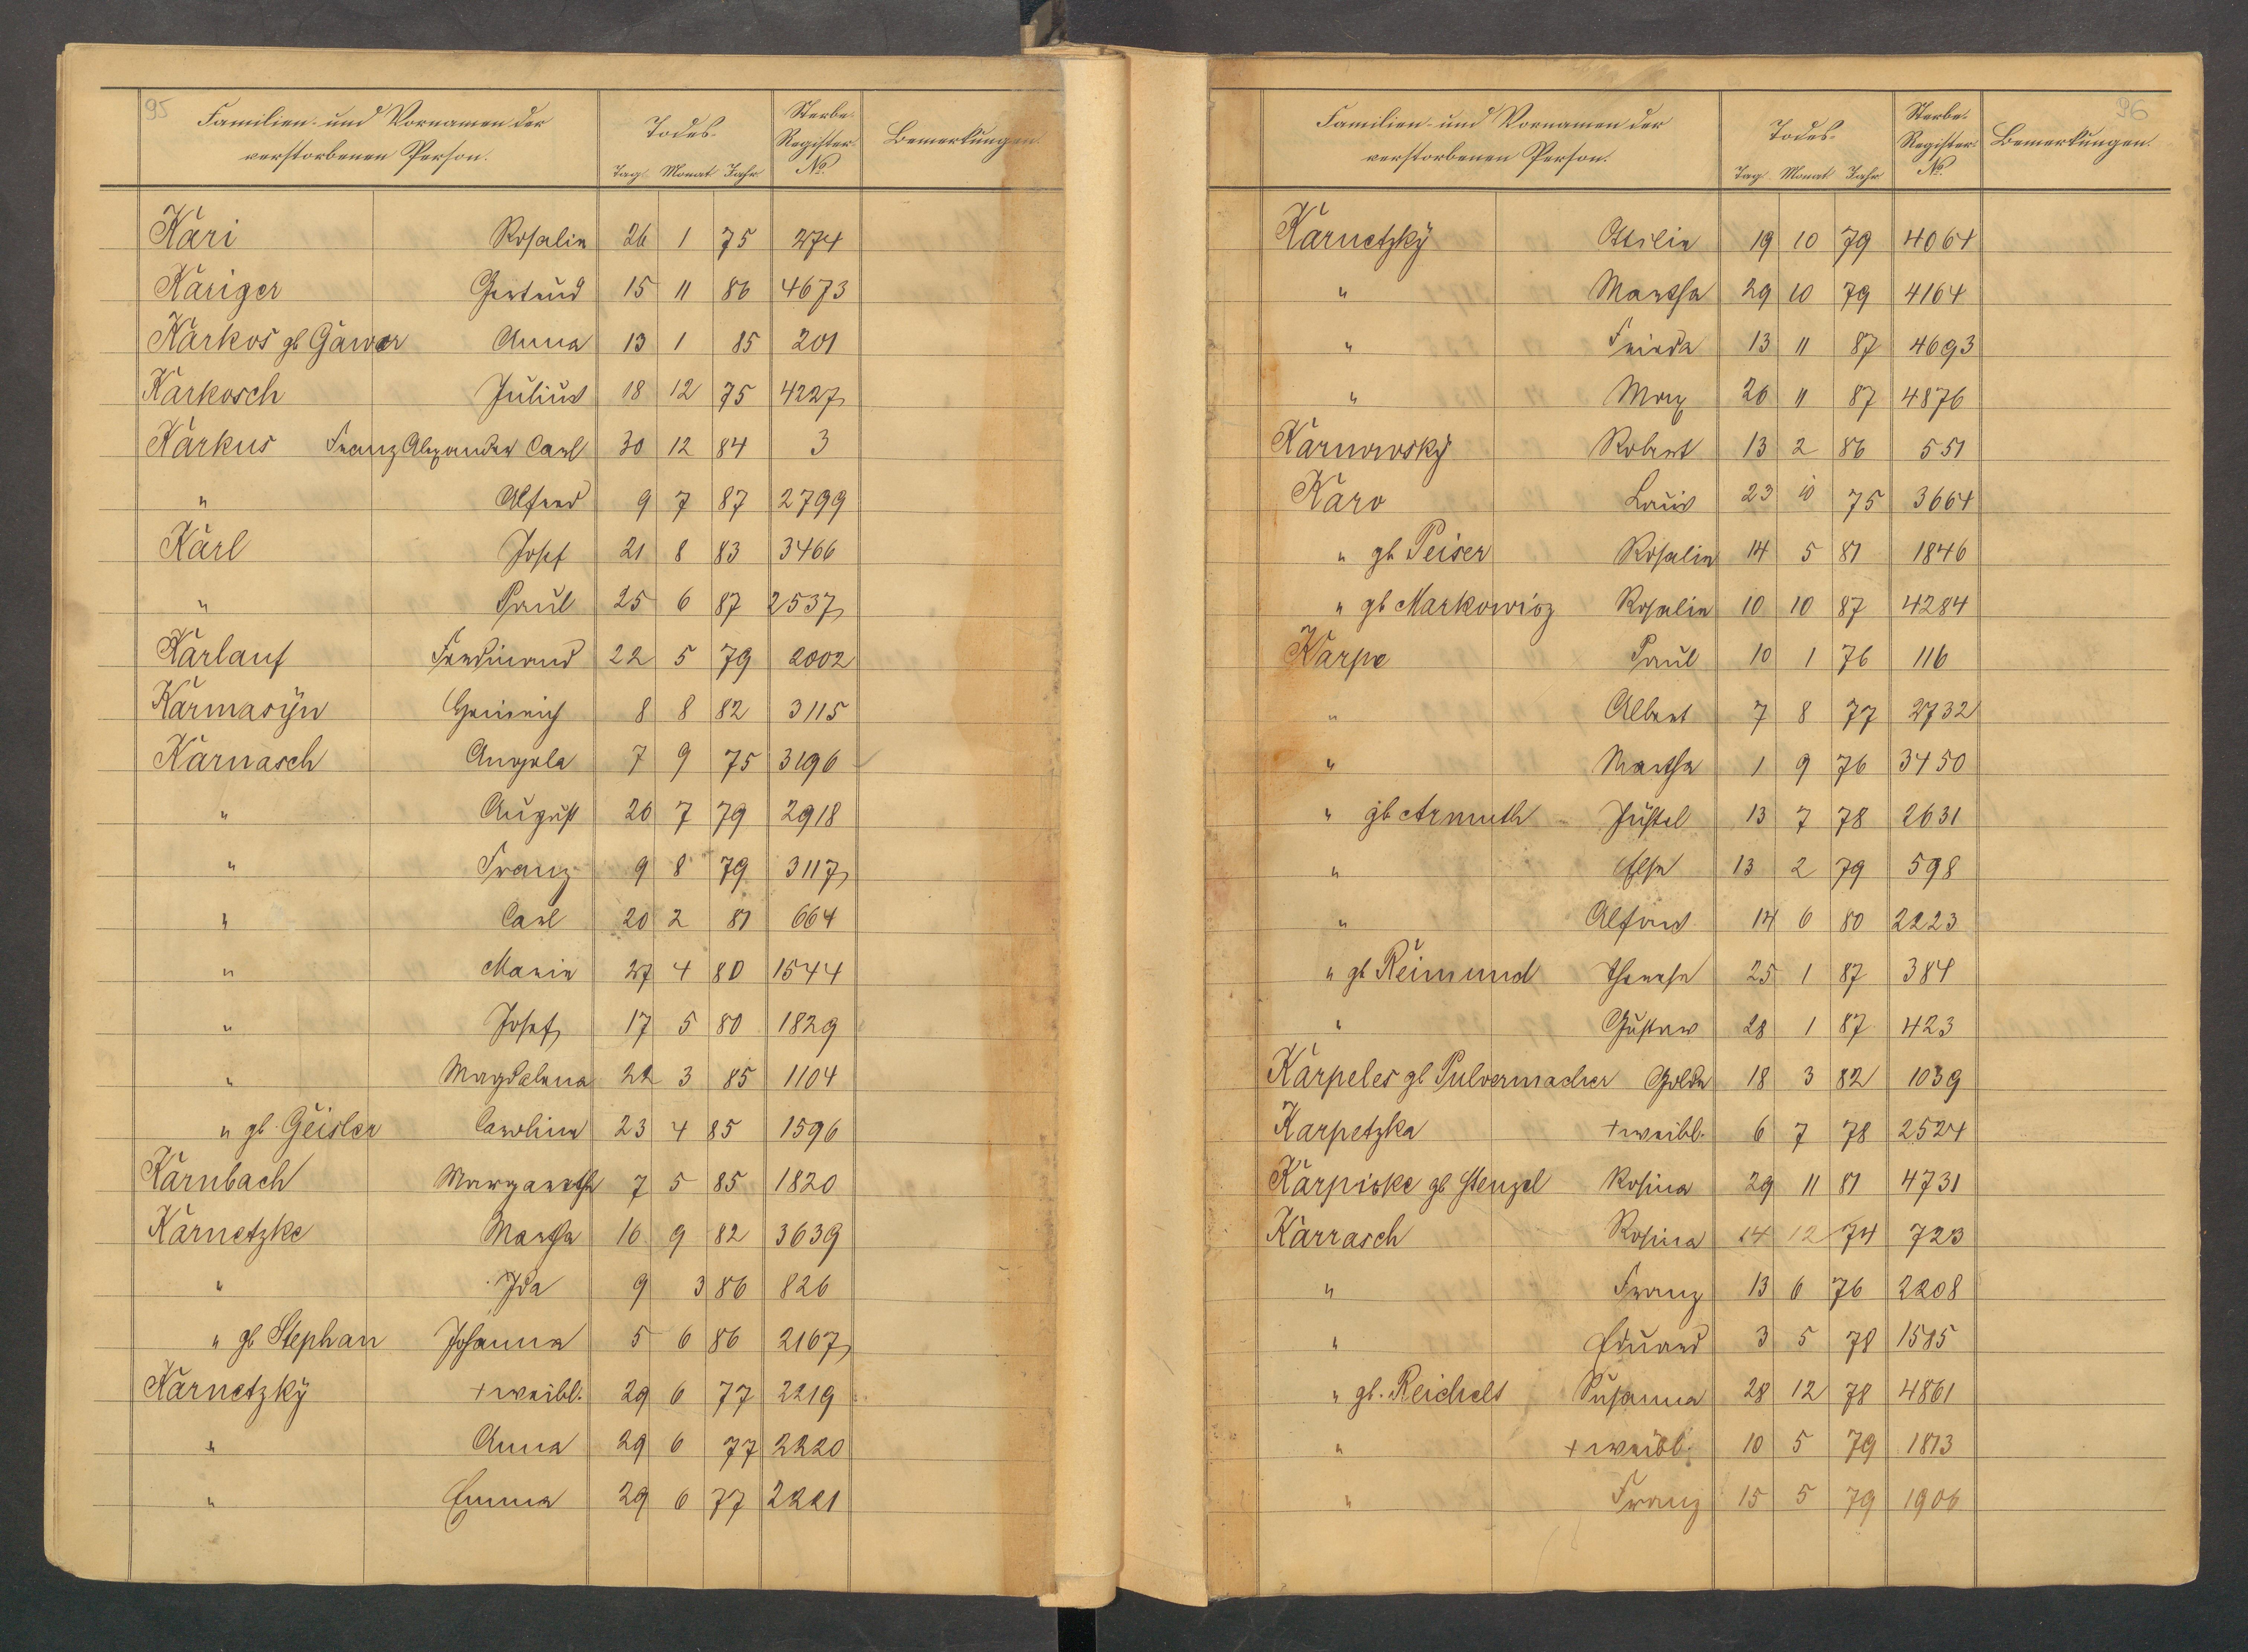 95 Familien- und Vornamen der verstorbenen Person. Todes- Tag Monat Jahr Sterbe-Register No. Bemerkungen.
Kari Rosalie 26 1 75 274
Kariger Gertrud 15 11 86 4673
Karkos gb Gawor Anna 13 1 85 201
Karkosch Julius 18 12 75 4227
Karkus Franz Alexander Carl 30 12 84 3
" Alfred 9 7 87 2799
Karl Josef 21 8 83 3466
" Paul 25 6 87 2537
Karlauf Ferdinand 22 5 79 2002
Karmasyn Heinrich 8 8 82 3115
Karnasch Angela 7 9 75 3196
" August 26 7 79 2918
" Franz 9 8 79 3117
" Carl 20 2 81 664
" Marie 27 4 80 1544
" Josef 17 5 80 1829
" Magdalena 22 3 85 1104
" gb. Geisler Caroline 23 4 85 1596
Karnbach Margarethe 7 5 85 1820
Karnetzke Martha 16 9 82 3639
" Ida 9 3 86 826
" gb Stephan Johanna 5 6 86 2167
Karnetzky + weibl. 29 6 77 2219
" Anna 29 6 77 2220
" Emma 29 6 77 2221
96 Familien- und Vornamen der verstorbenen Person. Todes- Tag Monat Jahr Sterbe-Register No. Bemerkungen.
Karnetzky Ottilie 19 10 79 4064
" Martha 29 10 79 4164
" Frieda 13 11 87 4693
" Max 26 11 87 4876
Karnowsky Robert 13 2 86 551
Karo Louis 23 10 75 3664
" gb Peiser Rosalie 14 5 81 1846
" gb Markowicz Rosalie 10 10 87 4284
Karpe Paul 10 1 76 116
" Albert 7 8 77 2732
" Martha 1 9 76 3450
" gb Armuth Jüstel 13 7 78 2631
" Else 13 2 79 598
" Alfons 14 6 80 2223
" gb Reimund Therese 25 1 87 384
" Gustav 28 1 87 423
Karpeles gb Pulvermacher Golde 18 3 82 1039
Karpetzka + weibl. 6 7 78 2524
Karpiske gb Stenzel Rosina 29 11 81 4731
Karrasch Rosina 14 12 74 723
" Franz 13 6 76 2208
" Eduard 3 5 78 1585
" gb. Reichelt Susanna 28 12 78 4861
" + weibl. 10 5 79 1813
" Franz 15 5 79 1906